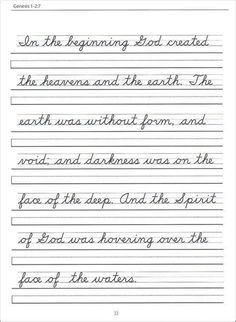 Genesis 1-2:7
In the beginning God created
the heavens and the earth. The
earth was without form, and
void; and darkness was on the
face of the deep. And the Spirit
of God was hovering over the
face of the waters.